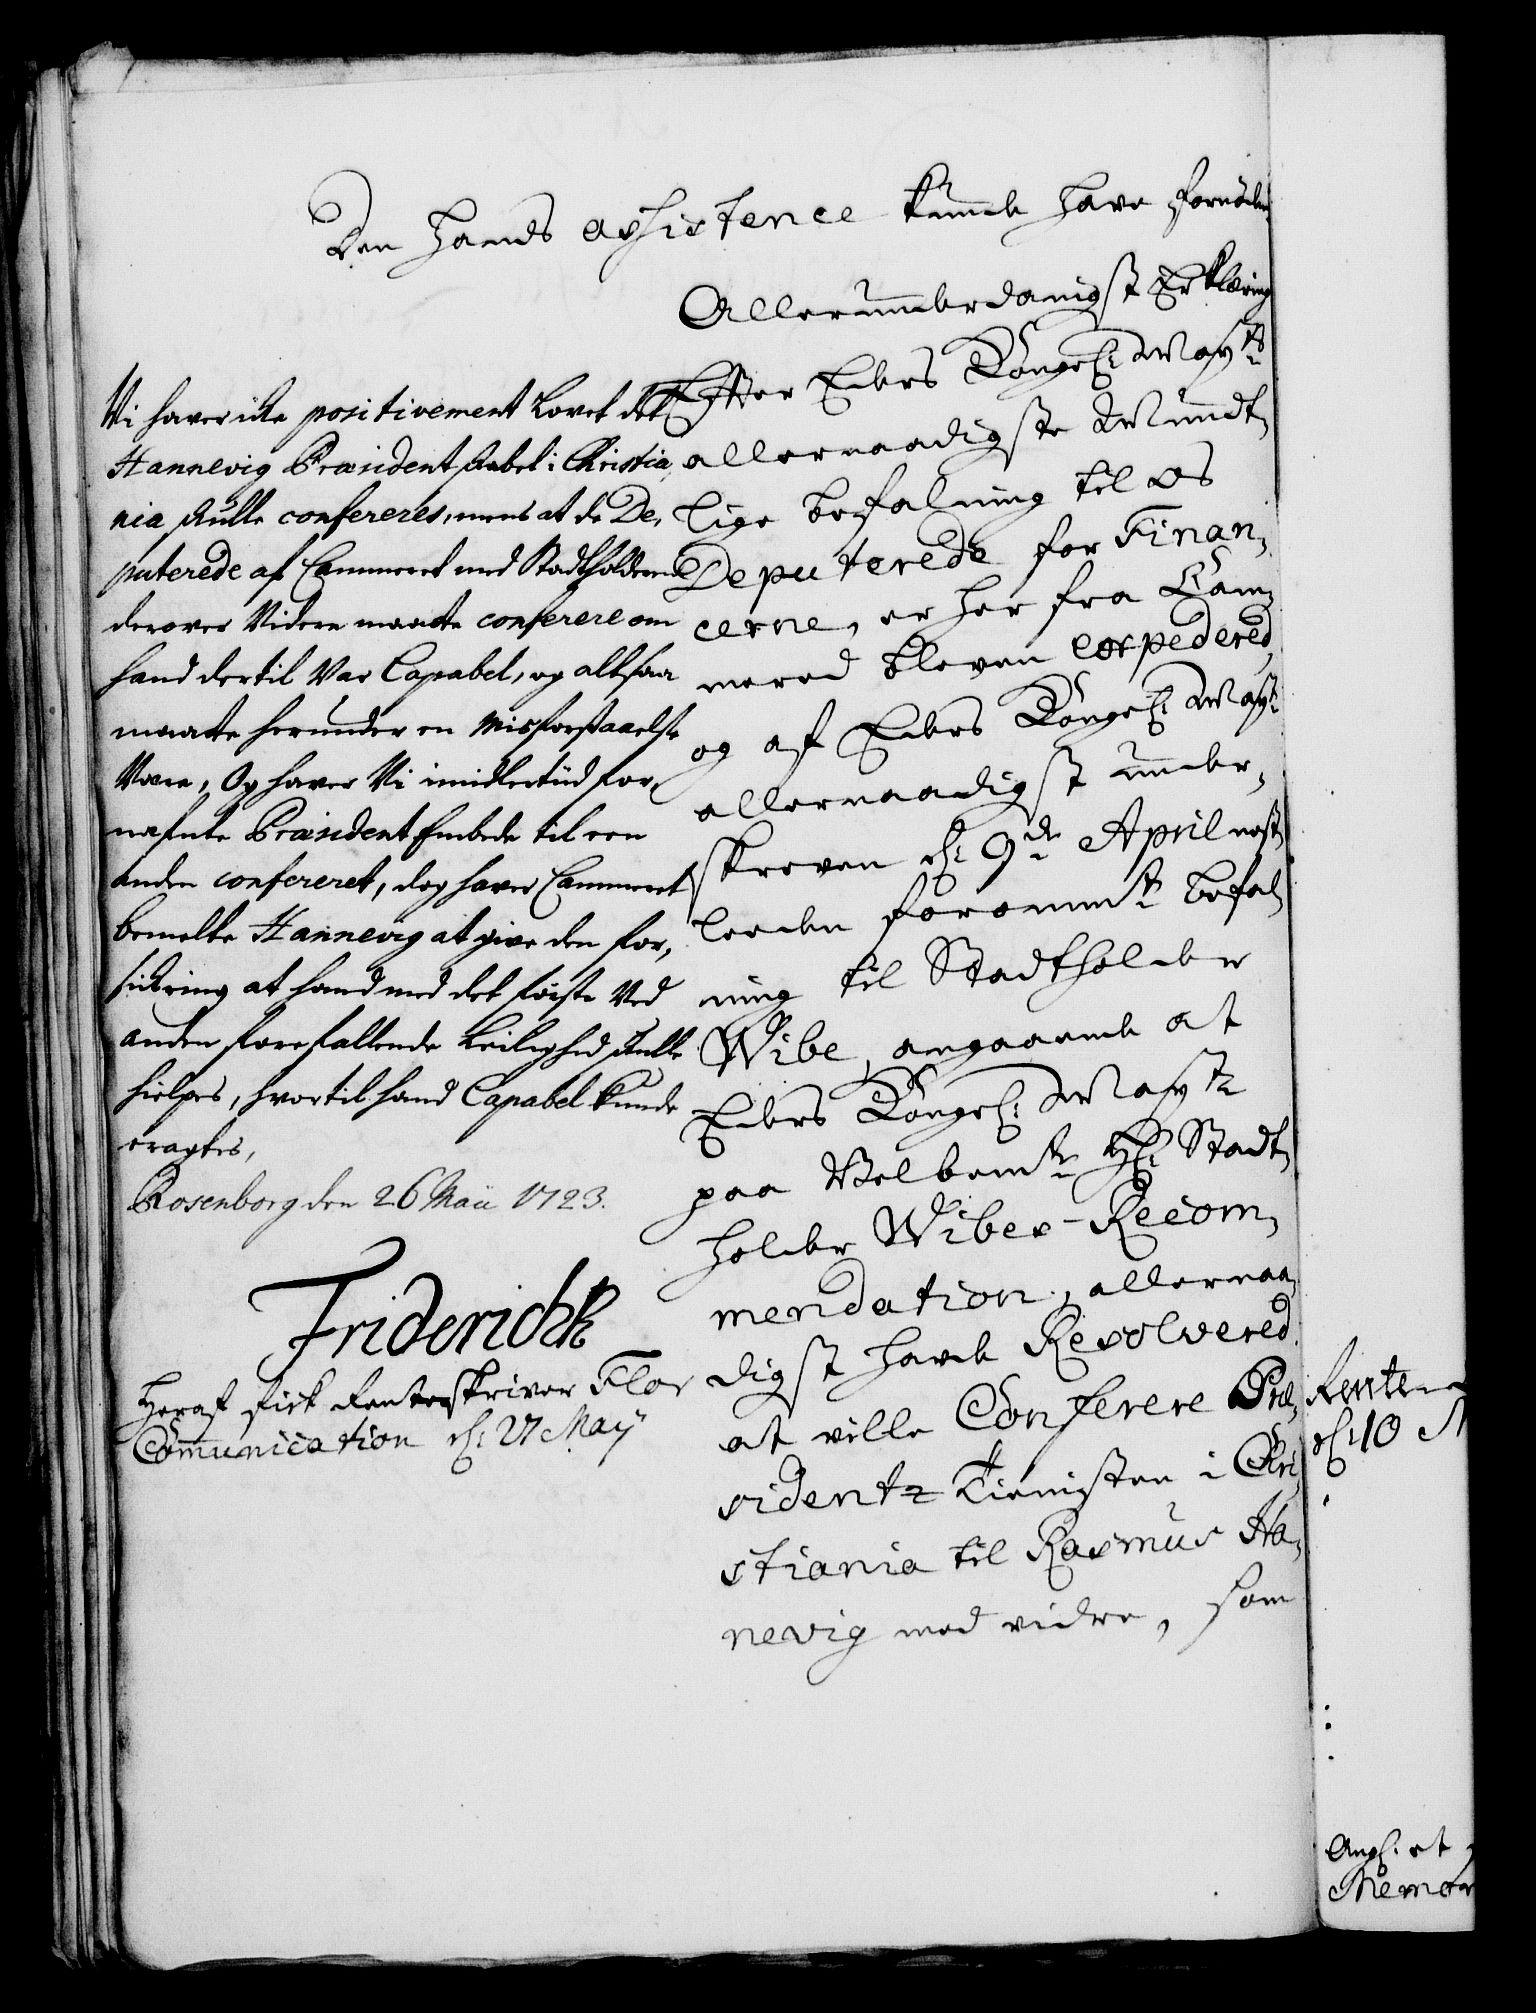 den hands assistence kunde have fornöden
Allerunderdanigst Erklæring
Efter Eders Kongel: Mayts
allernaadigste Mundt,
lige befalning til os
Deputerede for Finan,
cerne, er her fra Cam,
mered bleven expedered,
og af Eders Kongel: Mayt
allernaadigst under,
skreven d: 9de April nest
leeden forommte befal,
ning til Stadtholder
Wibe, angaaende at
Eders Kongel: Mayt
paa Velbemte Hr: Stadt,
holder Wibes Recom,
mendation, allernaa,
digst hafde Resolvered
at ville Conferere Præ,
sidentz Tienisten i Chri,
stiania til Rasmus Ha,
nevig med videre, som
Vi haver icke positivement Lovet det
Hannevig Præsident Embet i Christia,
nia skulle confereres, mens at de De,
puterede af Cammeret med Stadtholderen
derover Videre maatte conferere om
hand dertil Var Capabel, og altsaa
maatte herunder en Misforstaaelse
Være, Og haver Vi imidlertiid for,
nefnte Præsident Embede til een
anden confereret, dog haver Cammeret
bemelte Hannevig at give den for,
sickring at hand med det første Ved
anden forefallende Leilighed skulle
hielpes, hvortil hand Capabel kunde
eragtes,
Rosenborg den 26 Maii 1723.
Friderich R
Heraf fick Renteskriver Flor
Communication d: 27 Maij
Rente
d: 10 M
Angl: et
Memor